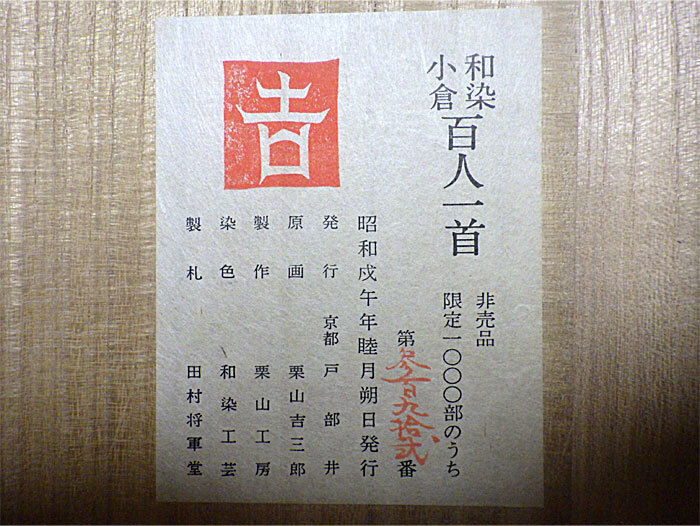 和染
小倉
百人一首
非売品
限定一〇〇〇部のうち
第参百九拾弐番
昭和戊午年睦月朔日発行
発行 京都 戸部井
原画 栗山吉三郎
製作 栗山工房
染色 和染工芸
製札 田村将軍堂
吉